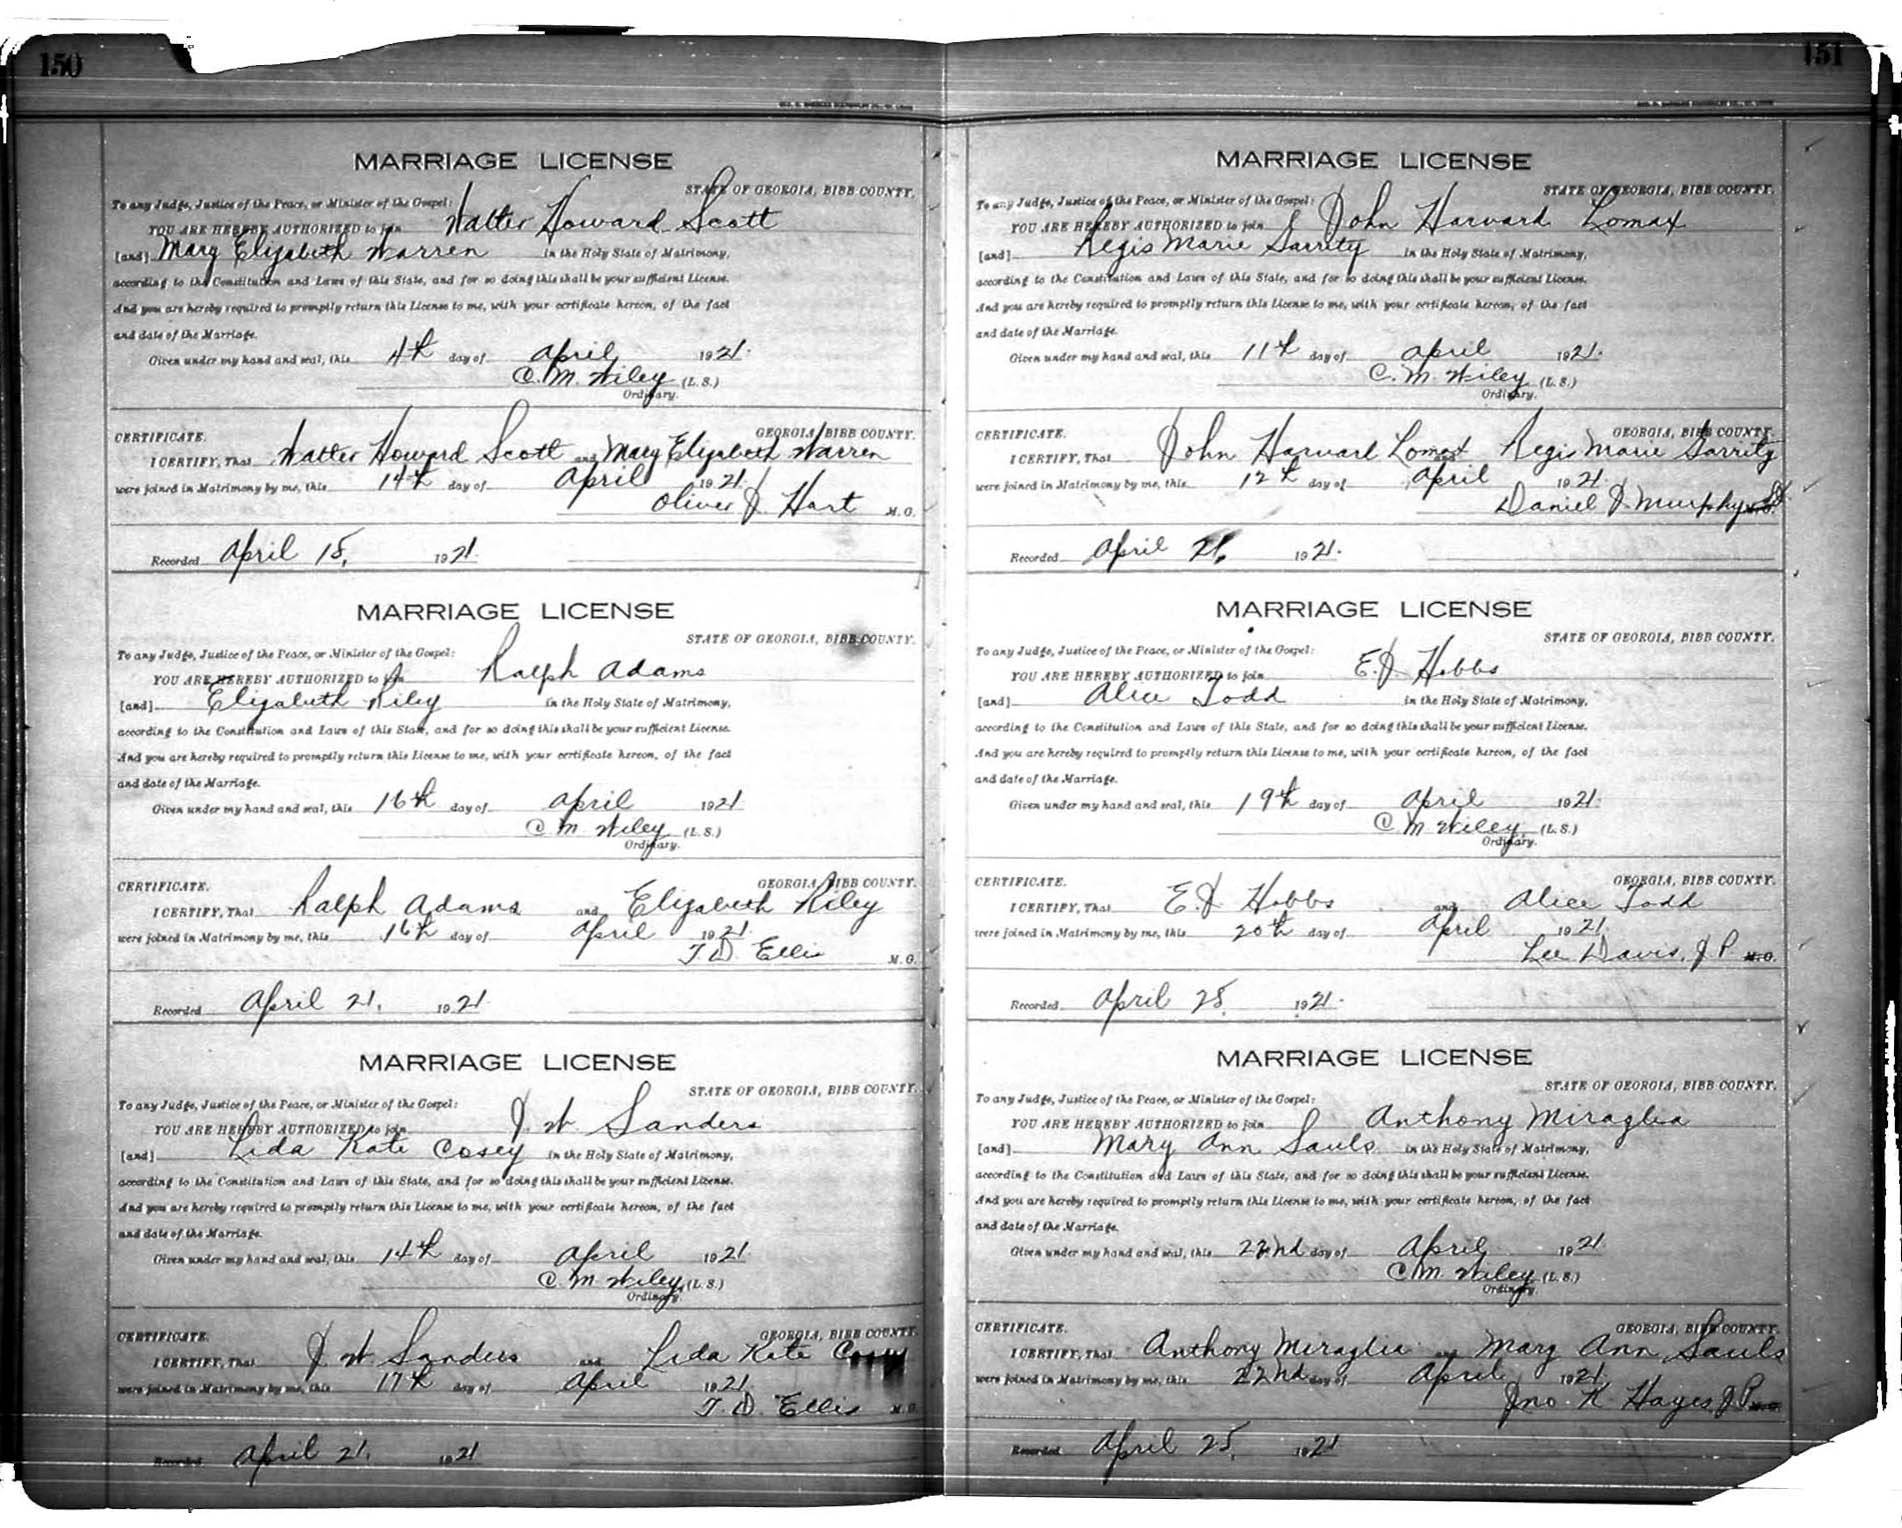 150
MARRIAGE LICENSE
STATE OF GEORGIA, BIBB COUNTY.
To any Judge, Justice of the Peace, or Minister of the Gospel:
YOU ARE HEREBY AUTHORIZED to join Walter Howard Scott
[and] Mary Elizabeth Warren in the Holy State of Matrimony,
according to the Constitution and Laws of this State, and for so doing this shall be your sufficient License.
And you are hereby required to promptly return this License to me, with your certificate hereon, of the fact
and date of the Marriage.
Given under my hand and seal, this 4th day of April 1921.
C. M. Wiley (L. S.)
Ordinary.
CERTIFICATE. GEORGIA, BIBB COUNTY.
I CERTIFY, That Walter Howard Scott and Mary Elizabeth Warren
were joined in Matrimony by me, this 14th day of April 1921.
Oliver J. Hart M. G.
Recorded April 15, 1921.
MARRIAGE LICENSE
STATE OF GEORGIA, BIBB COUNTY.
To any Judge, Justice of the Peace, or Minister of the Gospel:
YOU ARE HEREBY AUTHORIZED to join Ralph Adams
[and] Elizabeth Riley in the Holy State of Matrimony,
according to the Constitution and Laws of this State, and for so doing this shall be your sufficient License.
And you are hereby required to promptly return this License to me, with your certificate hereon, of the fact
and date of the Marriage.
Given under my hand and seal, this 16th day of April 1921
C M Wiley (L. S.)
Ordinary.
CERTIFICATE. GEORGIA, BIBB COUNTY.
I CERTIFY, That Ralph Adams and Elizabeth Riley
were joined in Matrimony by me, this 16th day of April 1921.
T. D. Ellis M. G.
Recorded April 21, 1921
MARRIAGE LICENSE
STATE OF GEORGIA, BIBB COUNTY.
To any Judge, Justice of the Peace, or Minister of the Gospel:
YOU ARE HEREBY AUTHORIZED to join J W Sanders
[and] Lida Kate Cosey in the Holy State of Matrimony,
according to the Constitution and Laws of this State, and for so doing this shall be your sufficient License.
And you are hereby required to promptly return this License to me, with your certificate hereon, of the fact
and date of the Marriage.
Given under my hand and seal, this 14th day of April 1921.
C M Wiley (L. S.)
Ordinary.
CERTIFICATE. GEORGIA, BIBB COUNTY.
I CERTIFY, That J W Sanders and Lida Kate Cosey
were joined in Matrimony by me, this 17th day of April 1921
T. D. Ellis M. G.
Recorded April 21, 1921
151
MARRIAGE LICENSE
STATE OF GEORGIA, BIBB COUNTY.
To any Judge, Justice of the Peace, or Minister of the Gospel:
YOU ARE HEREBY AUTHORIZED to join John Harvard Lomax
[and] Regis Marie Garrity in the Holy State of Matrimony,
according to the Constitution and Laws of this State, and for so doing this shall be your sufficient License.
And you are hereby required to promptly return this License to me, with your certificate hereon, of the fact
and date of the Marriage.
Given under my hand and seal, this 11th day of April 1921.
C. M. Wiley (L. S.)
Ordinary.
CERTIFICATE. GEORGIA, BIBB COUNTY.
I CERTIFY, That John Harvard Lomax and Regis Marie Garrity
were joined in Matrimony by me, this 12th day of April 1921.
Daniel J. Murphy
Recorded April 21, 1921.
MARRIAGE LICENSE
STATE OF GEORGIA, BIBB COUNTY.
To any Judge, Justice of the Peace, or Minister of the Gospel:
YOU ARE HEREBY AUTHORIZED to join E. J. Hobbs
[and] Alice Todd in the Holy State of Matrimony,
according to the Constitution and Laws of this State, and for so doing this shall be your sufficient License.
And you are hereby required to promptly return this License to me, with your certificate hereon, of the fact
and date of the Marriage.
Given under my hand and seal, this 19th day of April 1921.
C M Wiley (L. S.)
Ordinary.
CERTIFICATE. GEORGIA, BIBB COUNTY.
I CERTIFY, That E. J. Hobbs and Alice Todd
were joined in Matrimony by me, this 20th day of April 1921.
Lee Davis, J P M. G.
Recorded April 25, 1921.
MARRIAGE LICENSE
STATE OF GEORGIA, BIBB COUNTY.
To any Judge, Justice of the Peace, or Minister of the Gospel:
YOU ARE HEREBY AUTHORIZED to join Anthony Miraglia
[and] Mary Ann Sauls in the Holy State of Matrimony,
according to the Constitution and Laws of this State, and for so doing this shall be your sufficient License.
And you are hereby required to promptly return this License to me, with your certificate hereon, of the fact
and date of the Marriage.
Given under my hand and seal, this 22nd day of April 1921.
C M. Wiley (L. S.)
Ordinary.
CERTIFICATE. GEORGIA, BIBB COUNTY.
I CERTIFY, That Anthony Miraglia and Mary Ann Sauls
were joined in Matrimony by me, this 22nd day of April 1921.
Jno. K Hayes J P M. G.
Recorded April 25, 1921